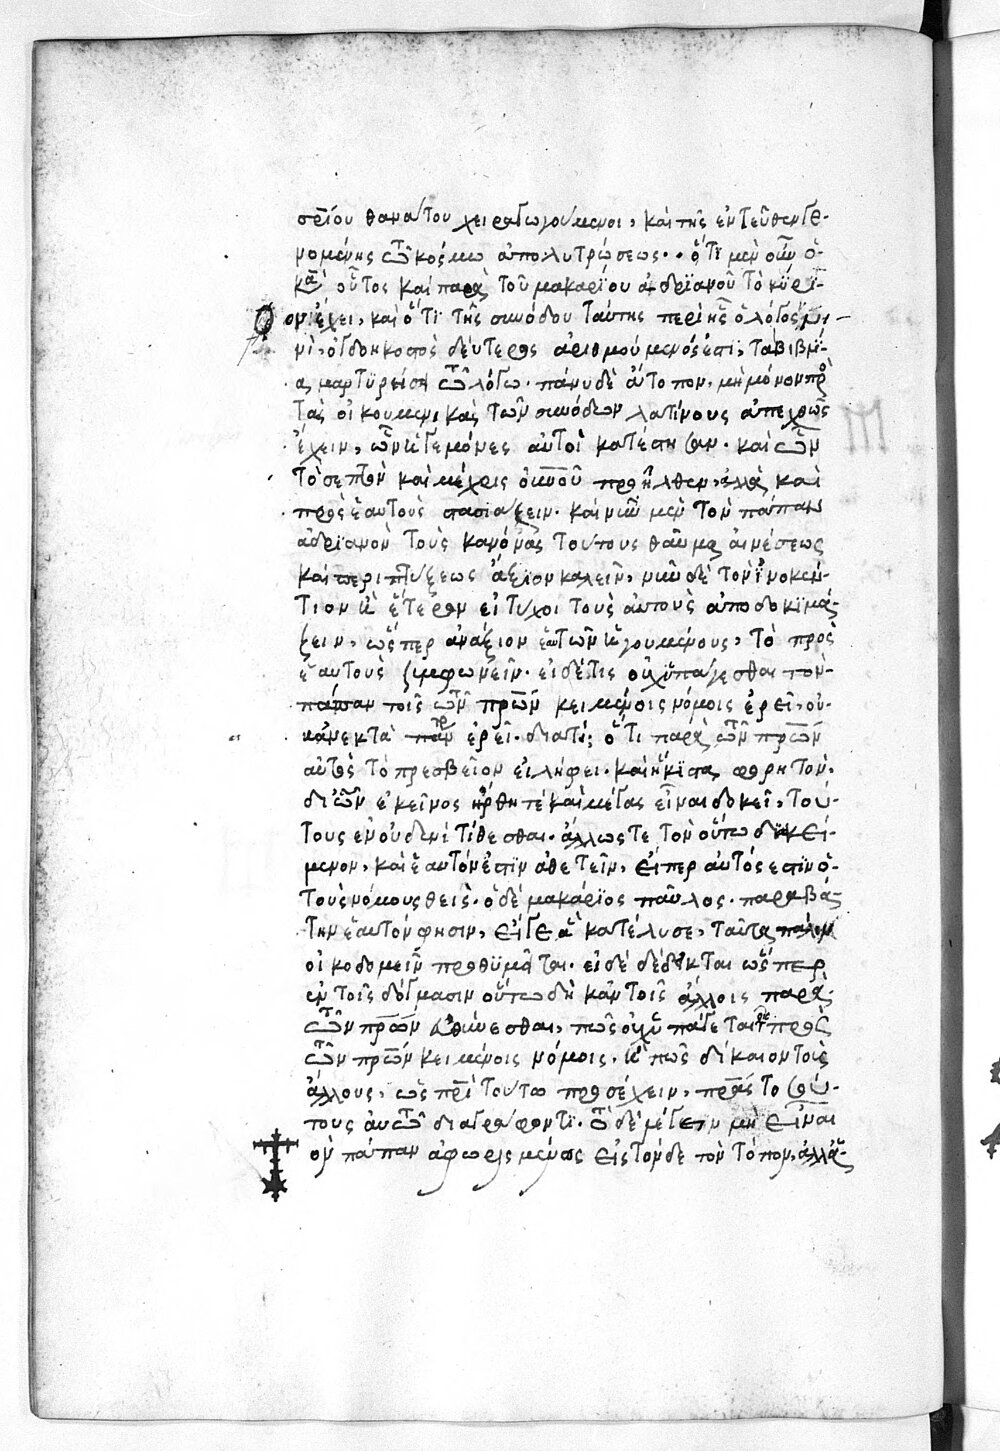 σωτηρίου θανάτου χειραγωγούμενοι, καὶ τῆς ἐντεῦθεν γε-
νομένης τῷ κόσμω ἀπολυτρώσεως. ὅτι μὲν οὖν ὁ
κανὼν οὗτος καὶ παρὰ τοῦ μακαρίου ἀδριανοῦ τὸ κύρι-
ον ἔχει, καὶ ὅτι τῆς συνόδου ταύτης περὶ ἧς ὁ λόγος
ὀγδοηκοστὸς δεύτερος ἀριθμούμενός ἐστι, τὰ βιβλί-
α μαρτυρείτω τῶ λόγω. πάνυ δὲ ἄτοπον, μὴ μόνον πρὸς
τὰς οἰκουμενικὰς τῶν συνόδων λατίνους ἀπεχθῶς
ἔχειν, ὧν ἡγεμόνες αὐτοὶ κατέστησαν. καὶ ὧν
τὸ σεπτὸν καὶ μέχρις οὐρανοῦ προῆλθεν, ἀλλὰ καὶ
πρὸς ἑαυτοὺς στασιάζειν. καὶ νῦν μὲν τὸν πάπαν
ἀδριανὸν τοὺς κανόνας τούτους θαῦμα αἰνέσεως
καὶ περιπτύξεως ἄξιον καλεῖν, νῦν δὲ τὸν ἰνοκέν-
τιον ἢ ἕτερον εἰ τύχοι τοὺς αὐτοὺς ἀποδοκιμά-
ζειν, ὥσπερ ἀνάξιον ἑαυτῶν ἡγουμένους, τὸ πρὸς
ἑαυτοὺς συμφωνεῖν. εἰ δέ τις οὐχ ὑπάγεσθαι τὸν
πάπαν τοῖς τῶν πρώτων κειμένοις νόμοις ἐρεῖ, οὐ-
κ ἀνεκτὰ πάντως ἐρεῖ. διατί; ὅτι παρὰ τῶν πρώτων
αὐτὸς τὸ πρεσβεῖον εἰλήφει. καὶ ἥκιστα φορητόν.
δι' ὧν ἐκεῖνος ἤρθη τὲ καὶ μέγας εἶναι δοκεῖ, τού-
τους ἐν οὐδενὶ τίθεσθαι. ἄλλως τε τὸν οὕτω διακεί-
μενον, καὶ ἑαυτόν ἐστιν ἀθετεῖν, εἴπερ αὐτός ἐστιν ὁ
τοὺς νόμους θεὶς. ὁ δὲ μακάριος παῦλος. παραβά-
την ἑαυτόν φησιν, εἴγε ἃ κατέλυσε, ταῦτα πάλιν
οἰκοδομεῖν προθυμᾶται. εἰ δὲ δέδεικται ὥσπερ
ἐν τοῖς δόγμασιν οὕτω δὴ κἀν τοῖς ἄλλοις παρὰ
τῶν πρώτων εὐθύνεσθαι, πῶς οὐχ ὑπάγεται τοῖς πρὸς
τῶν πρώτων κειμένοις νόμοις. ἢ πῶς δίκαιον τοὺς
ἄλλους, ὡς πατρὶ τούτω προσέχειν, πατράσι τοσού-
τους αὐτῶ διαγράφοντι. ὃ δὲ μέγιστον μὴ εἶναι
τὸν πάπαν ἀφωρισμένως εἰς τόνδε τὸν τόπον, ἀλλὰ